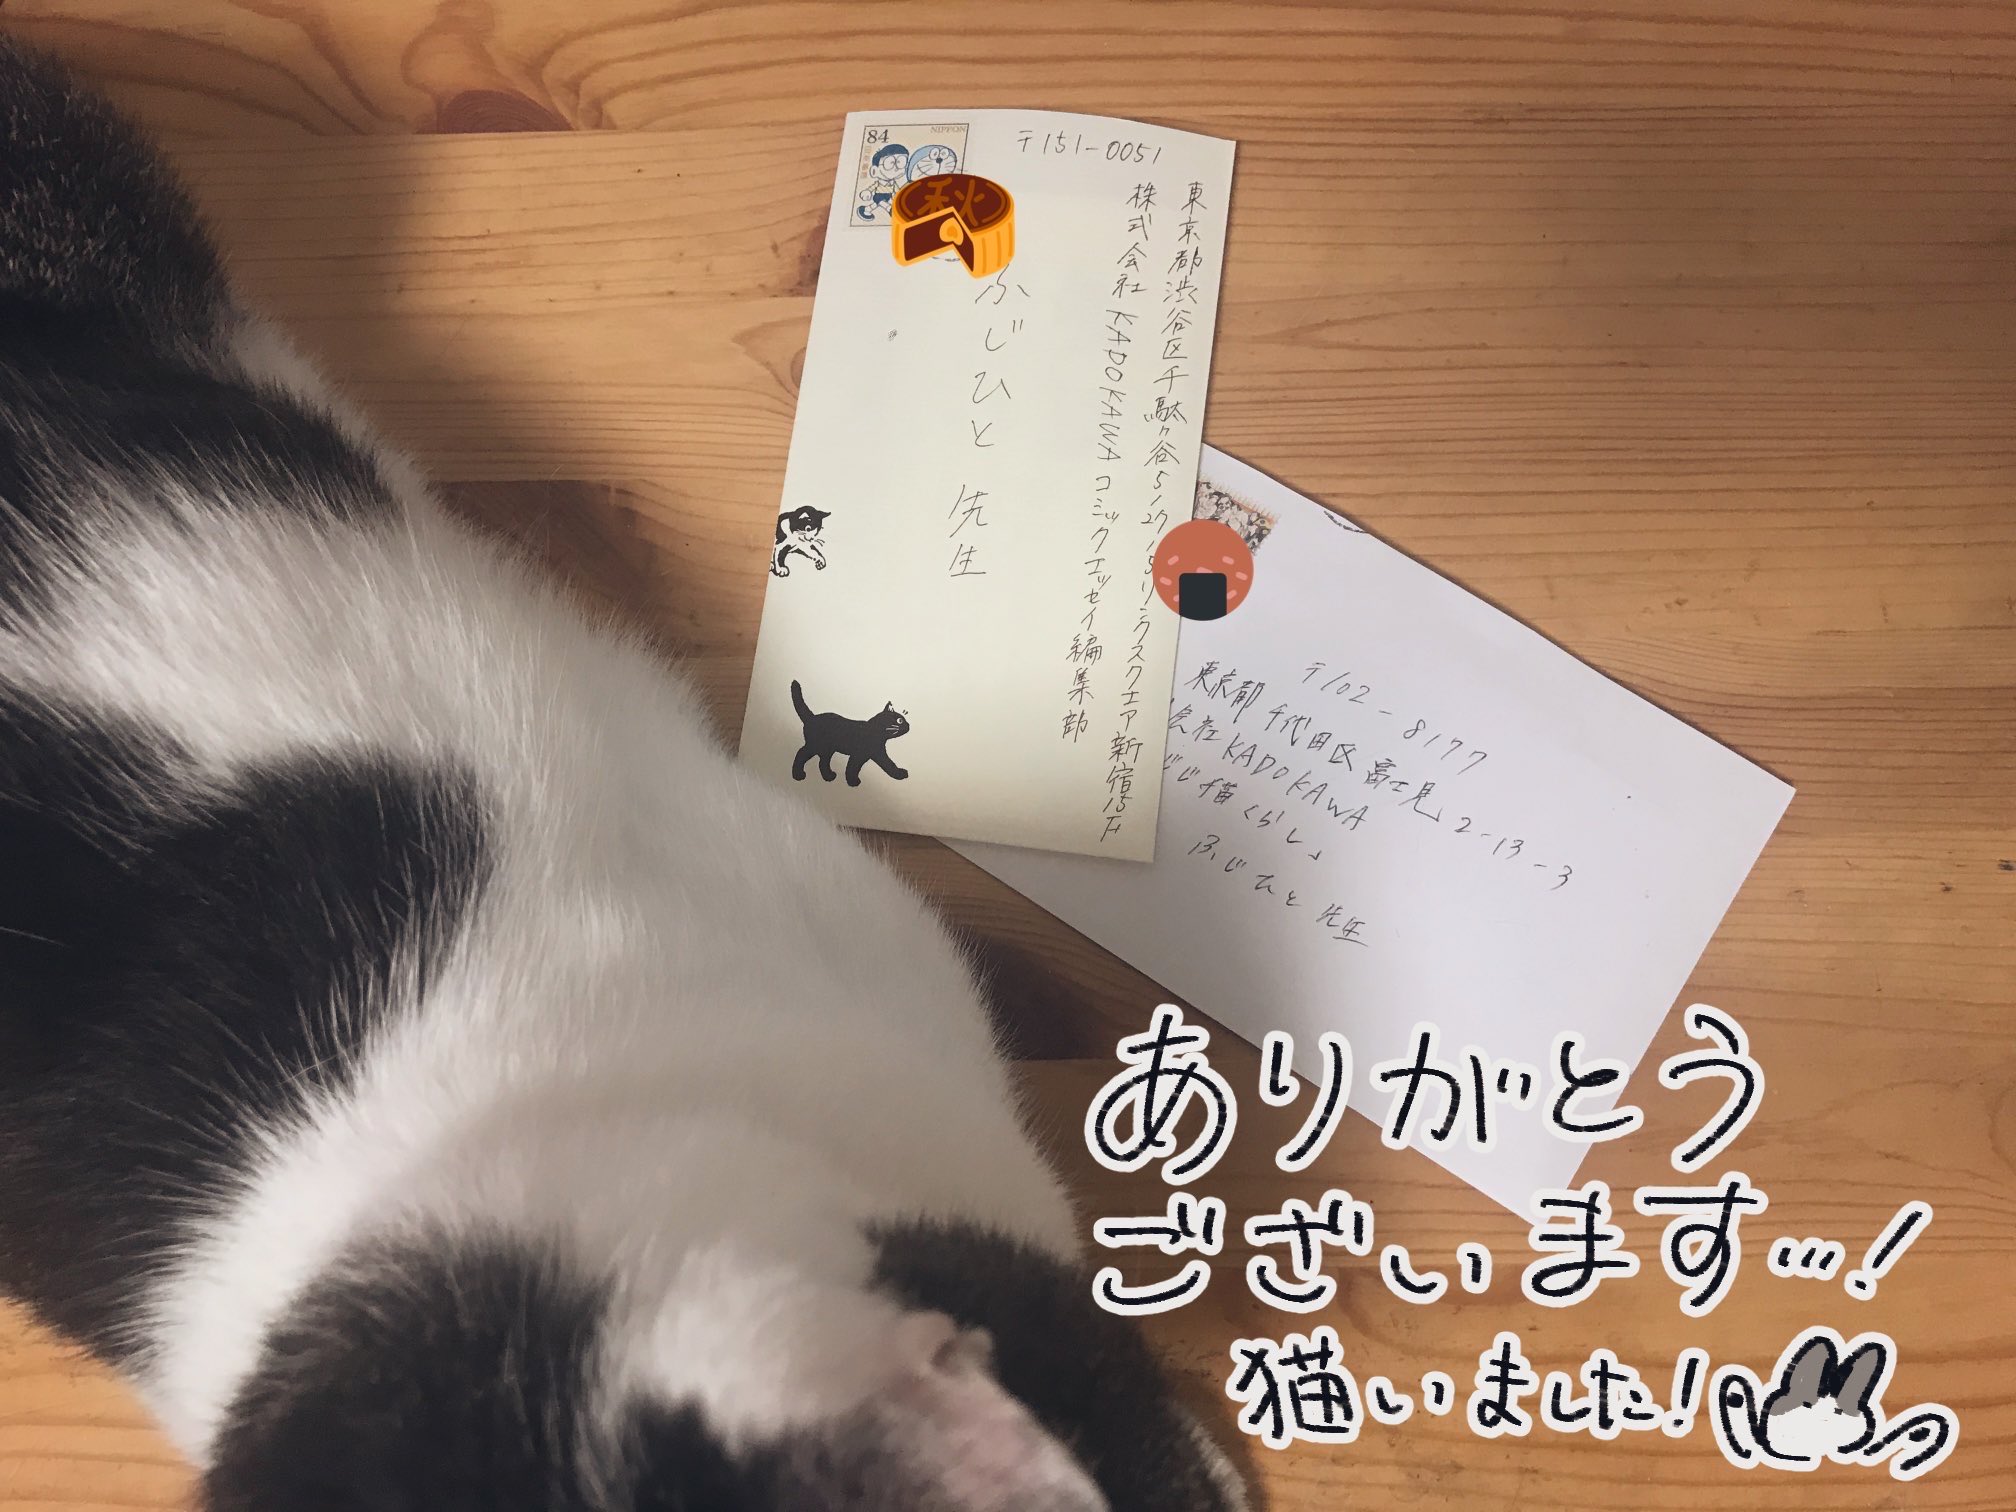 84
NIPPON
〒151-0051
東京都渋谷区千駄ヶ谷5-27-5リンクスクエア新宿15F
株式会社 KADOKAWA コミックエッセイ編集部
ふじひと 先生
秋
〒102-8177
東京都 千代田区 富士見 2-13-3
会社 KADOKAWA
猫くらし」
ふじひと 先生
ありがとう
ございます…!
猫いました!